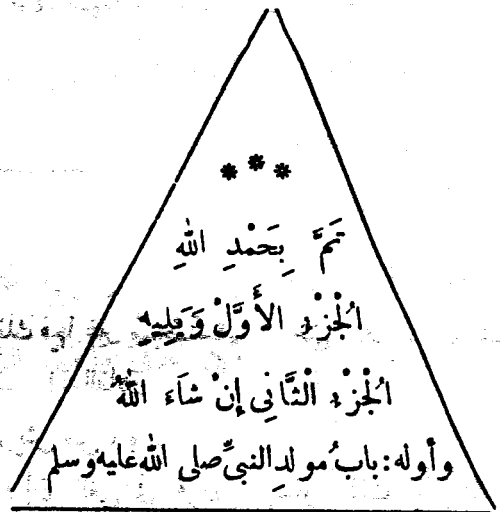 * * *
تَمَّ بِحَمْدِ اللهِ
الجُزْءُ الأَوَّلْ وَيَلِيهِ
الجُزْءُ الْثَّانِى إِنْ شَاءَ اللهُ
وأوله: بابُ مولدِ النبىِّ صلى الله عليه وسلم